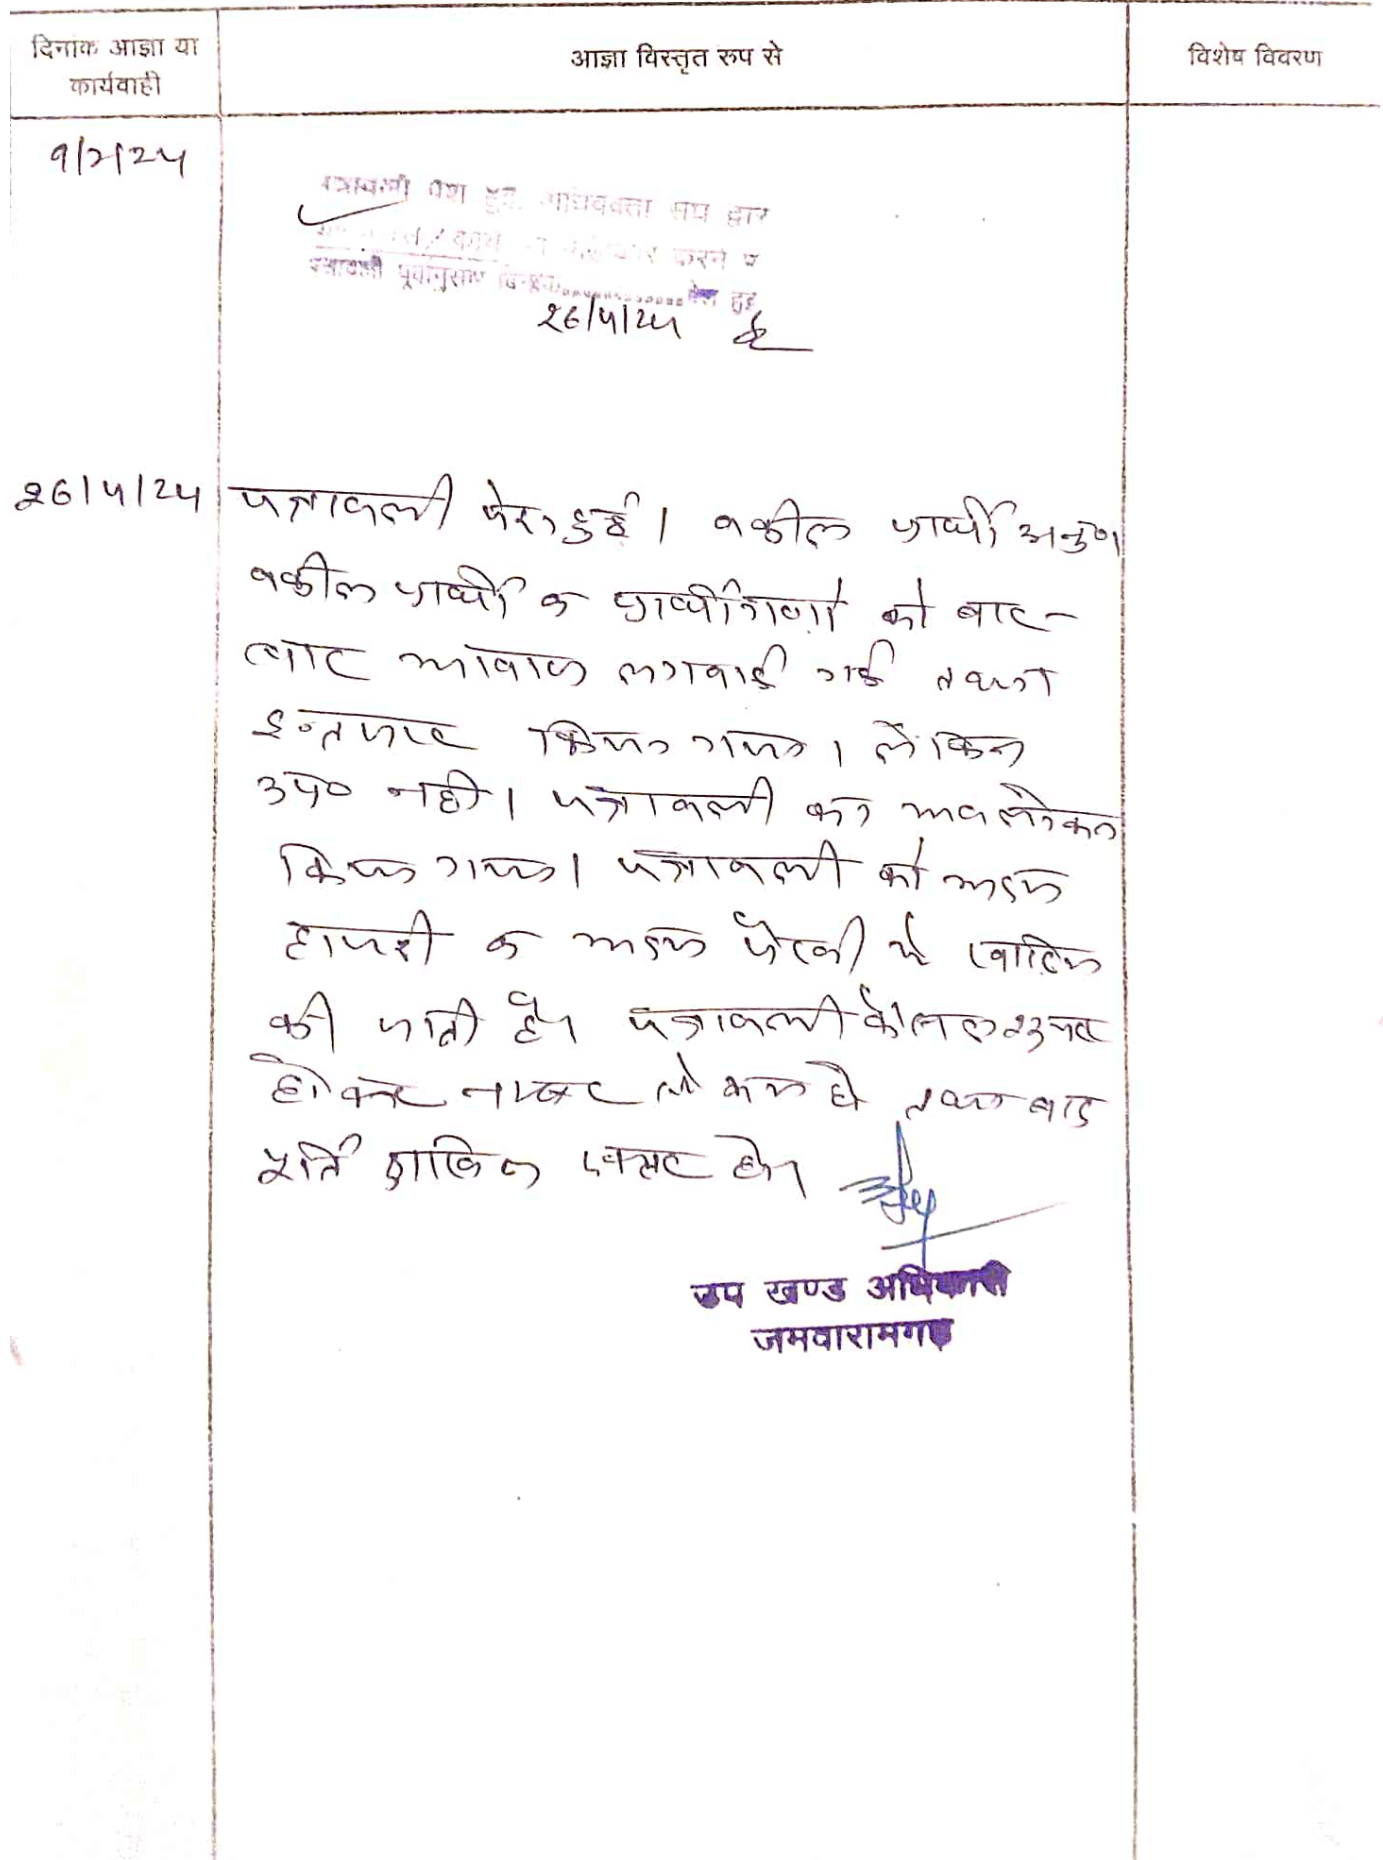 दिनांक आज्ञा या
कार्यवाही
आज्ञा विस्तृत रूप से
विशेष विवरण
पत्रावली पेश हुई. अभिभाषक संघ द्वारा
कार्य करने व
पत्रावली पूर्वानुसार दिनांक.............पेश हुई
26/5/25
26/5/25
पत्रावली पेश हुई। वकील प्रार्थी अनु०
वकील प्रार्थी व प्रार्थीगणों को बार-
बार आवाज लगवाई गई तथा
इन्तजार किया गया। लेकिन
उप० नहीं। पत्रावली का अवलोकन
किया गया। पत्रावली को अदम
हाजरी व अदम पैरवी में खारिज
की जाती है। पत्रावली फैसल शुमार
होकर नम्बर से कम हो तथा बाद
पूर्ति दाखिल दफ्तर हो।
उप खण्ड अधिकारी
जमवारामगढ़